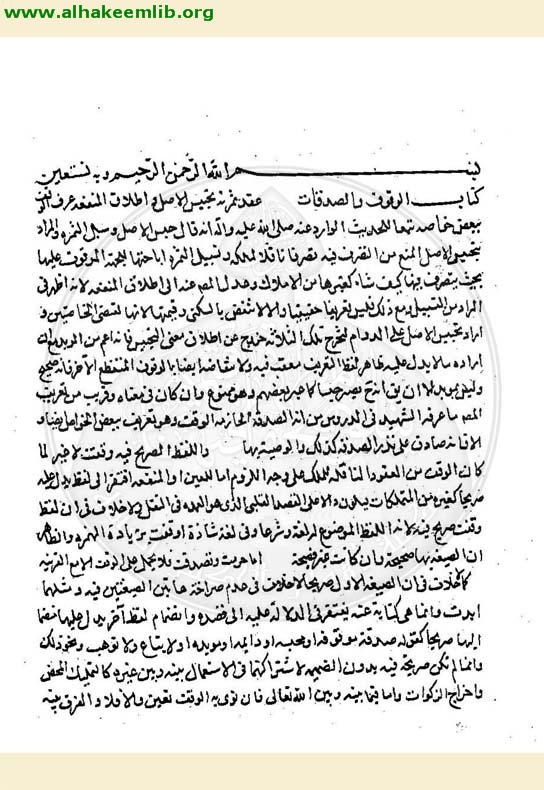 www.alhakeemlib.org
بسم الله الرحمن الرحيم وبه نستعين
كتاب الوقوف والصدقات عقد ثمرته تحبيس الاصل واطلاق المنفعه عرف الوقف
ببعض خواصه تبعا للحديث الوارد عنه صلى الله عليه واله انه قال حبس الاصل وسبل الثمره والمراد
بتحبيس الاصل المنع من التصرف فيه تصرفا ناقلا لملكه وتسبيل الثمره اباحتها للجهة الموقوف عليها
بحيث يتصرف بها كيف شاء كغيرها من الاملاك وعدل المص عنه الى اطلاق المنفعه لانه اظهر في
المراد من التسبيل ومع ذلك فليس تعريفا حقيقيا والا لانتقض بالسكنى وقسيميها لانها
اراد بتحبيس الاصل على الدوام لتخرج تلك الثلاثه خرج عن اطلاق معنى التحبيس فانه اعم من الموبد
اراده ما لا يدل عليه ظاهر لفظ التعريف معتب فيه ولانتقاضه ايضا بالوقوف المنقطع الاخر فانه صحيح
وليس بموبد الا ان يق انتج يصير حبسا كما عبر بعضهم وهو ممنوع وان كان في معناه وقريب من تعريف
المص ما عرفه الشهيد في الدروس من انه الصدقة الجاريه الوقت وهو تعريف ببعض الخواص ايضا و
الا فانه صادق على نذر الصدقة كذلك والوصية بها واللفظ الصريح فيه وقفت لا غير لما
كان الوقف من العقود الناقله للملك على وجه اللزوم اما للعين او المنفعه افتقر الى لفظ يدل عليه
صريحا كغيره من المتملكات ليكون دالا على القصد القلبي الذي هو العمده في النقل ولا خلاف في ان لفظ
وقفت صريح فيه لانه اللفظ الموضوع له لغة وشرعا وفي لغة شاذة اوقفت بزيادة الهمزه والظاهر
ان الصيغه بها صحيحة وان كانت غير فصيحة اما حرمت وتصدقت فلا يحمل على الوقف الا مع القرينه
كما لا خلاف في ان الصيغه الاولى صريحا لا خلاف في عدم صراحة هاتين الصيغتين فيه ومثلهما
ابدت وانما هي كناية عنه يفتقر في الدلالة عليه الى قصده وانضمام لفظ اخر يدل عليها منضما
اليها صريحا كقوله صدقة موقوفة او محبسه او دايمه او موبده او لا يباع ولا توهب ونحو ذلك
وانما لم تكن صريحة فيه بدون الضميمه لاشتراكهما في الاستعمال بينه وبين غيره كالتمليك المحض
واخراج الزكوات واما فيما بينه وبين الله تعالى فان نوى به الوقف تعين والا فلا والفرق بينه